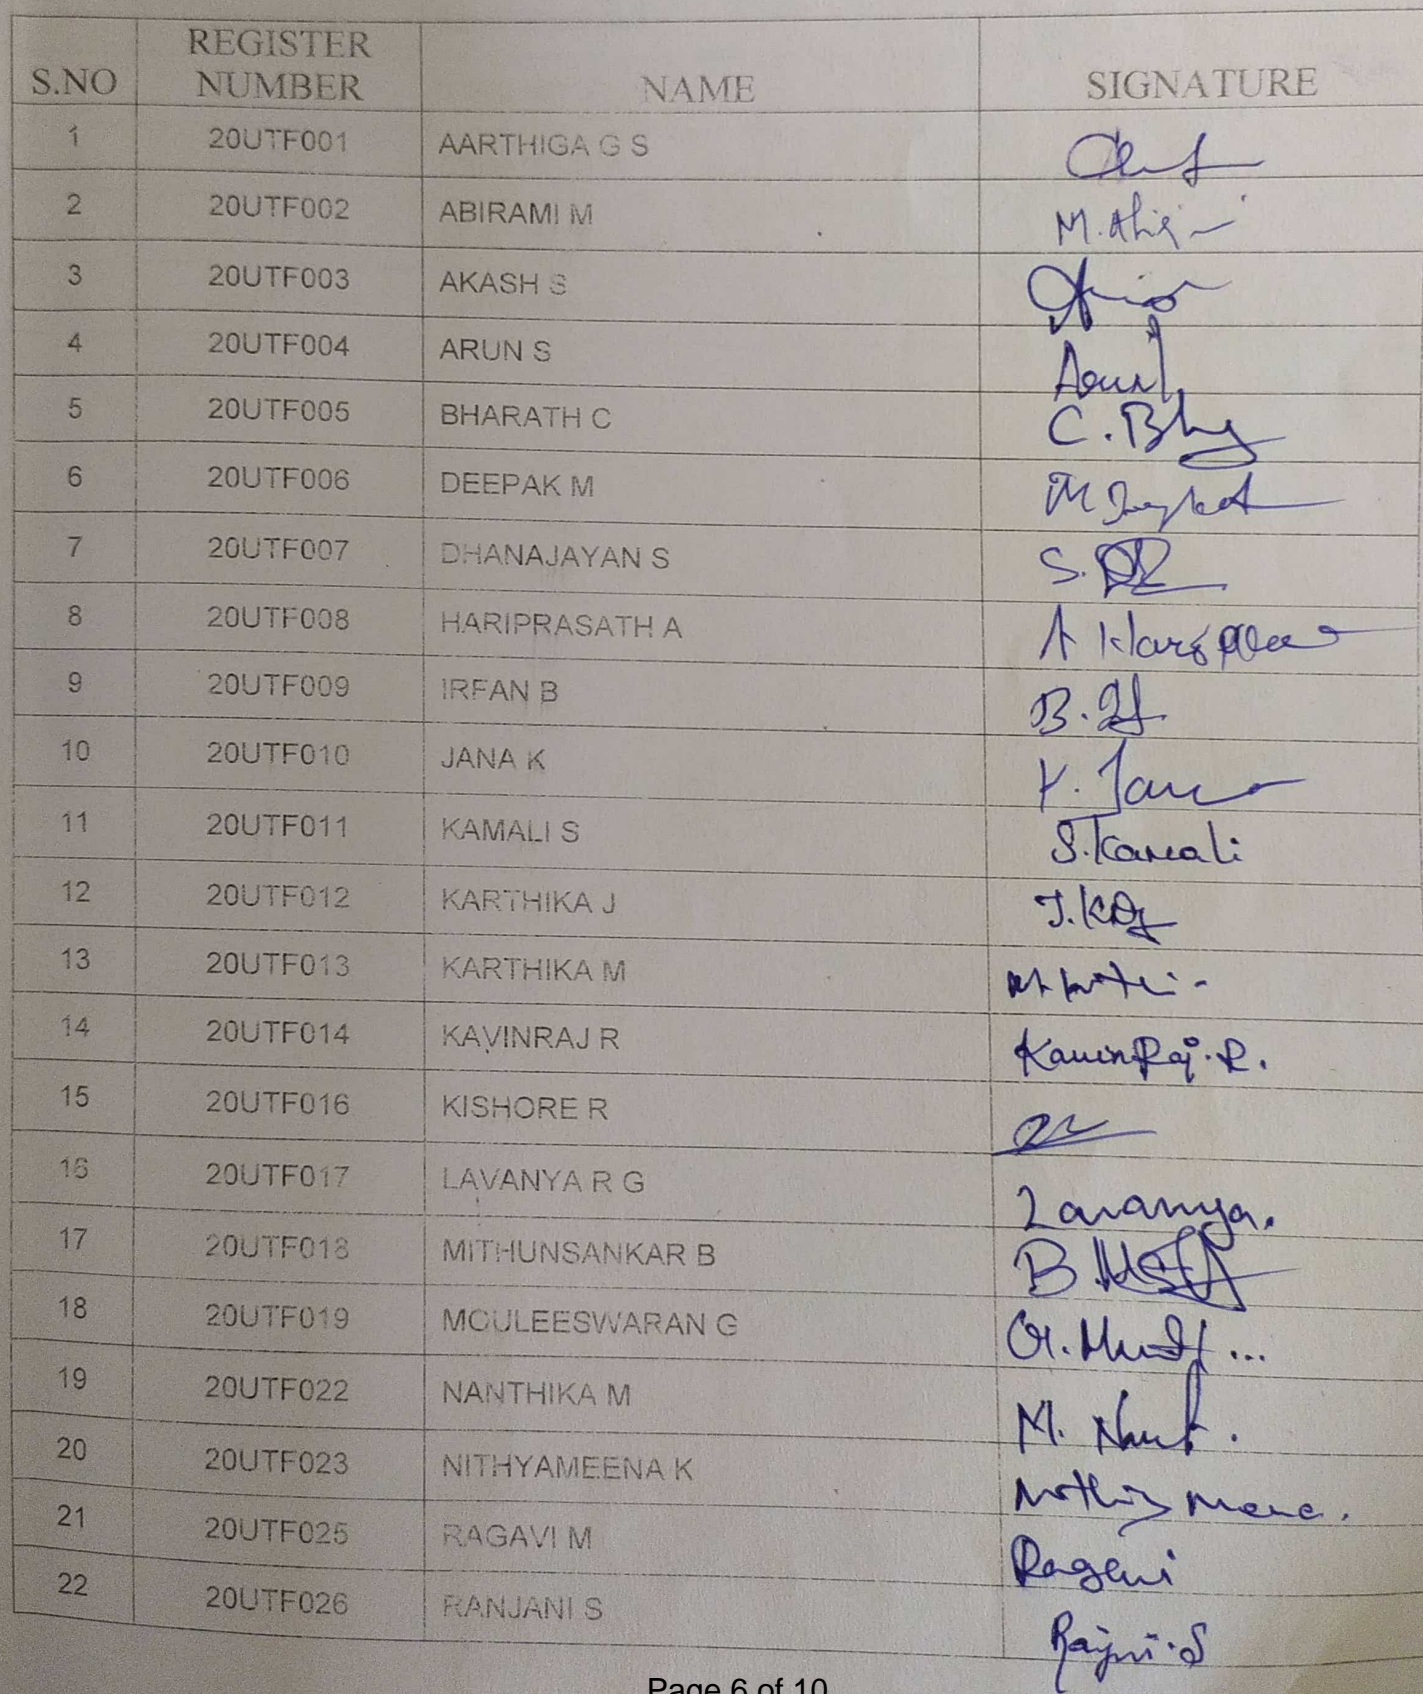 S.NO REGISTER NUMBER NAME SIGNATURE
1 20UTF001 AARTHIGA G S
2 20UTF002 ABIRAMI M
3 20UTF003 AKASH S
4 20UTF004 ARUN S
5 20UTF005 BHARATH C
6 20UTF006 DEEPAK M
7 20UTF007 DHANAJAYAN S
8 20UTF008 HARIPRASATH A
9 20UTF009 IRFAN B
10 20UTF010 JANA K
11 20UTF011 KAMALI S S.Kamali
12 20UTF012 KARTHIKA J
13 20UTF013 KARTHIKA M
14 20UTF014 KAVINRAJ R KavinRaj.R.
15 20UTF016 KISHORE R
16 20UTF017 LAVANYA R G Lavanya.
17 20UTF018 MITHUNSANKAR B
18 20UTF019 MOULEESWARAN G
19 20UTF022 NANTHIKA M
20 20UTF023 NITHYAMEENA K
21 20UTF025 RAGAVI M Ragavi
22 20UTF026 RANJANI S
Page 6 of 10